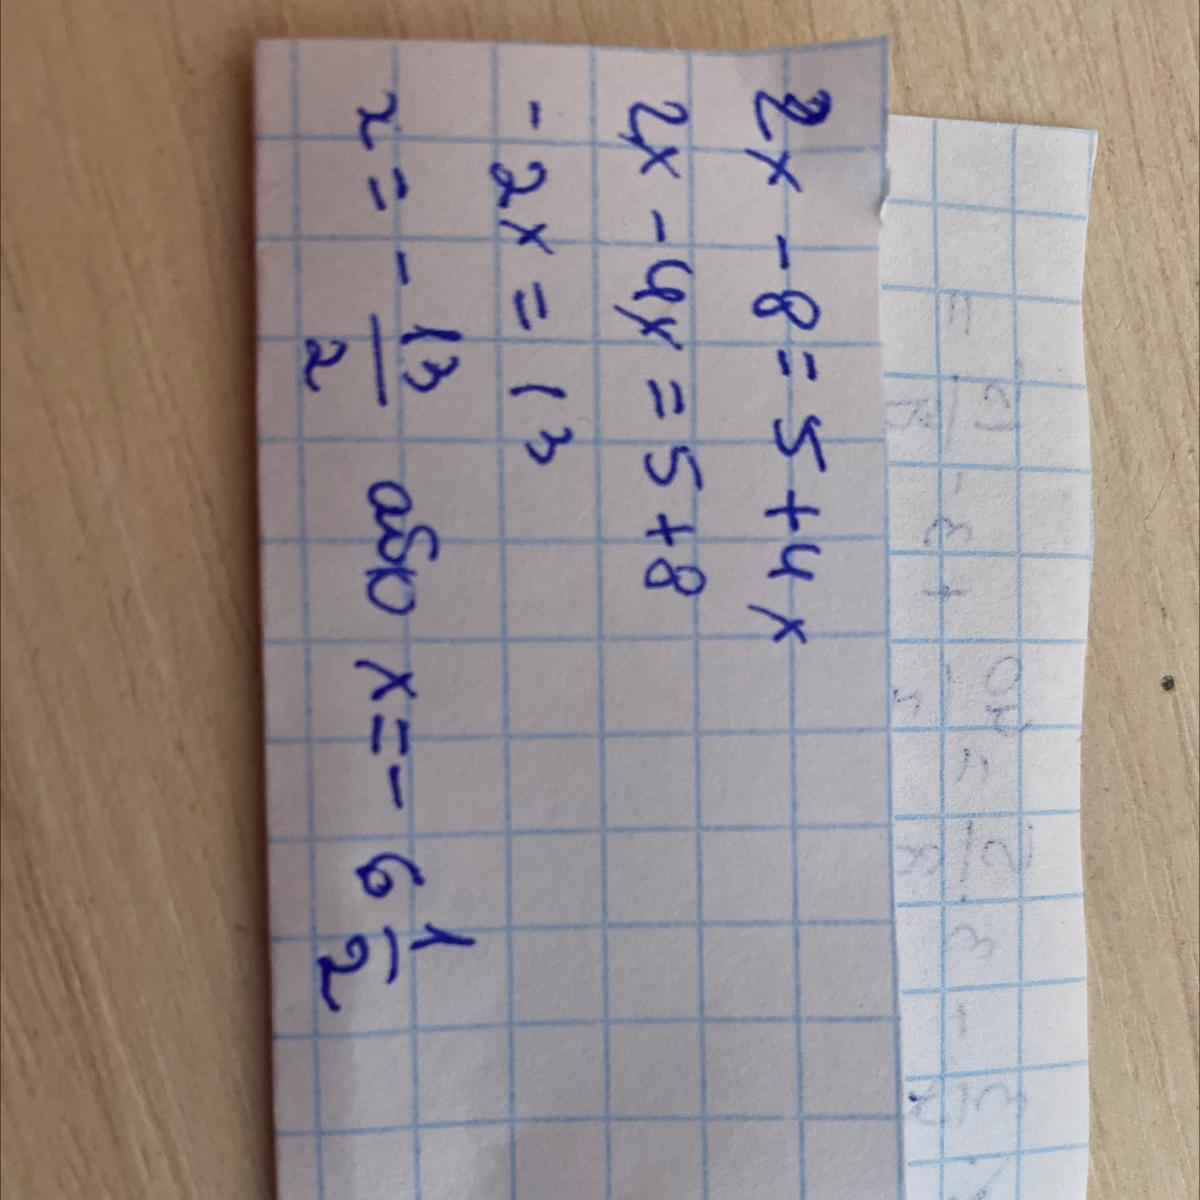 2x - 8 = 5 + 4x
2x - 4x = 5 + 8
- 2x = 13
x = - 13/2 або x = - 6 1/2